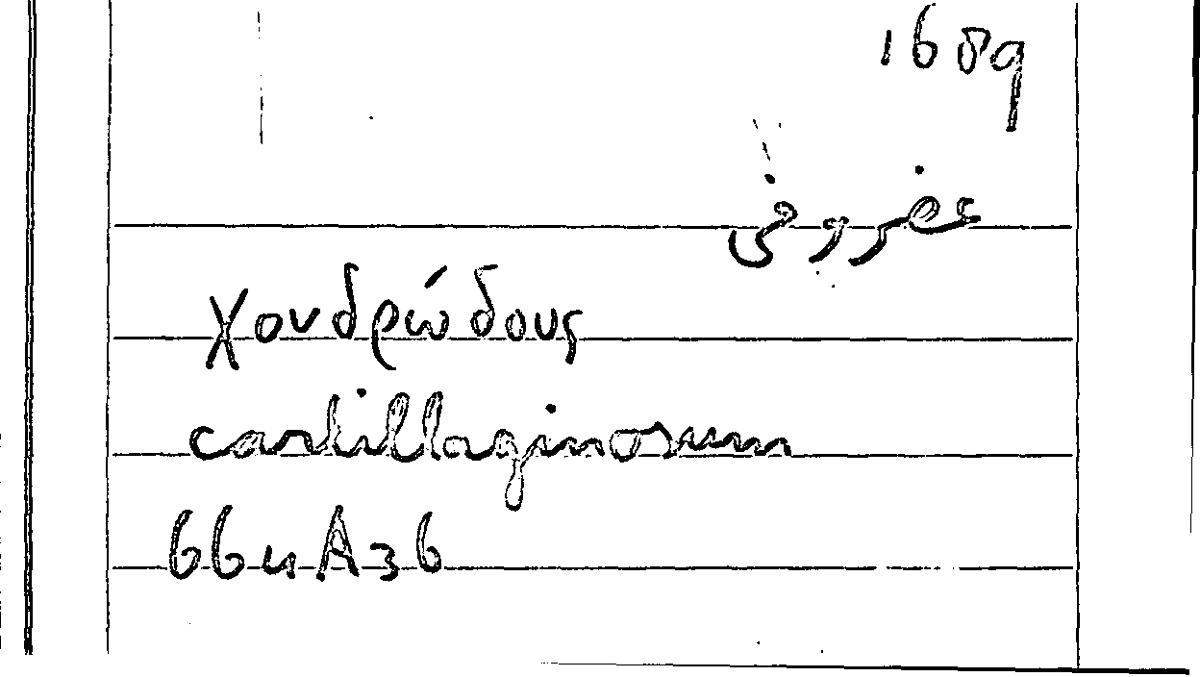 1689
غضروفى
χονδρώδους
cartillaginosum
66uA36